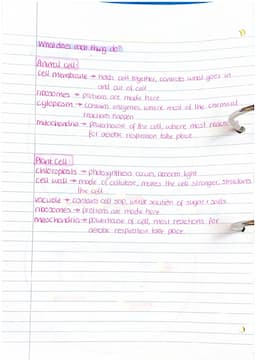 What does each thing do?
Animal cell:
cell membrane → holds cell together, controls what goes in
and out of cell
ribosomes → proteins are made here
cytoplasm → contains enzymes, where most of the chemical
reactions happen
mitochondria → powerhouse of the cell, where most reactions
for aerobic respiration take place.
Plant Cell:
chloroplasts → photosynthesis occurs, absorbs light
cell wall → made of cellulose, makes the cell stronger, structures
the cell
vacuole → contains cell sap, weak solution of sugar + salts
ribosomes → proteins are made here
mitochondria → powerhouse of cell, most reactions for
aerobic respiration take place.